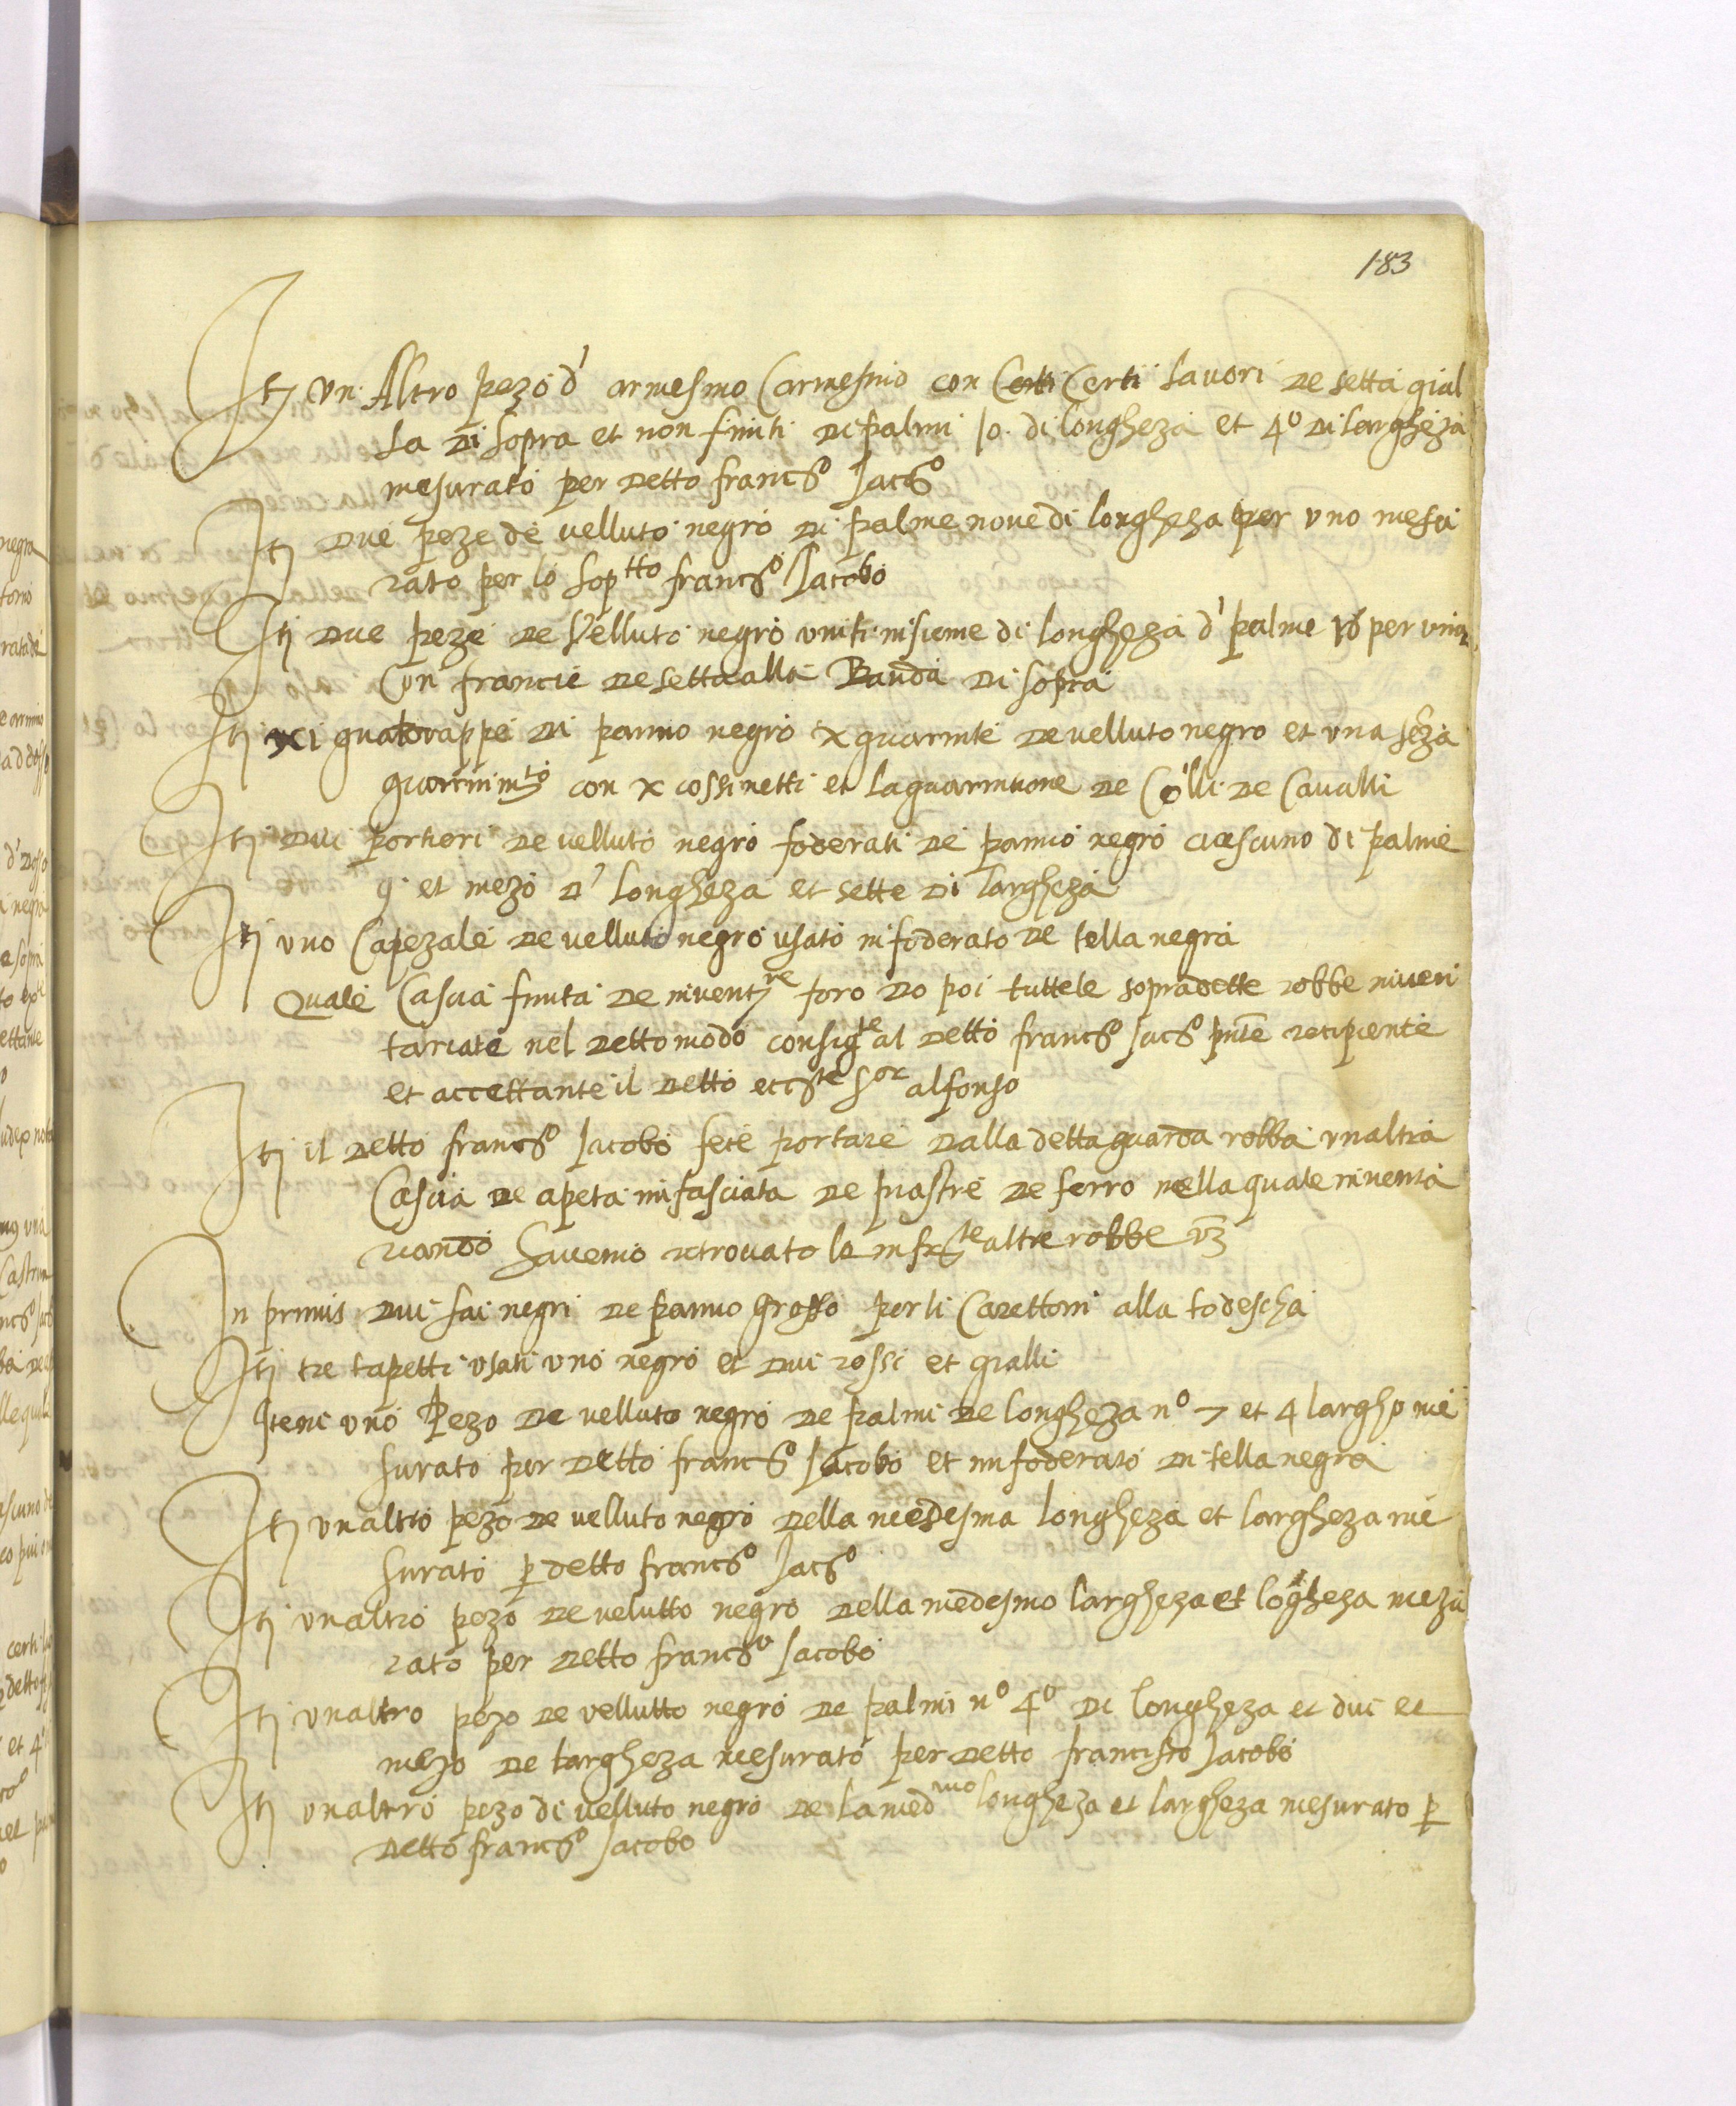 183
Itj un Altro pezo d' armesino Carmesino con Certi Certi lavori de setta gial
la di sopra et non finiti di palmi 10. di longheza et 4º di largheza
mesurato per detto francº Jacº
Itj due peze de velluto negro di palme nove di longheza per uno mesu
rato per lo soptto francº Jacobo
Itj due peze de velluto negro uniti insieme di longheza d' palme per una
Con francie de setta alla Banda di sopra
Itj xi gualdrappe di panno negro x guarnite de velluto negro et una seza
guarnimto con x cossinetti et la guarnitione de Colli de Cavalli
Itj dui portieri de velluto negro foderati de panno negro ciascuno di palme
9 et mezo d' longheza et sette di largheza
Itj uno Capezale de velluto negro usato infoderato de tella negra
Quale Cascia finita de inventre foro do poi tutte le sopradette robbe inven
tariate nel detto modo consigte al detto francº Jacº pnte recipiente
et accettante il detto eccte Sor alfonso
Itj il detto francº Jacobo fece portare dalla detta guarda robba unaltra
Cascia de apeta infasciata de piastre de ferro nella quale inventa
riando havemo retrovato le infrte altre robbe vz
In primis dui sai negri de panno grosso per li Carettoni alla todescha
Itj tre tapetti usati uno negro et dui rossi et gialli
Item uno Pezo de velluto negro de palmi de longheza nº 7 et 4 largho me
surato per detto francº Jacobo et infoderato di tella negra
Itj unaltro pezo de velluto negro della medesma longheza et largheza me
surato p detto francº Jacº
Itj unaltro pezo de velutto negro della medesmo largheza et logheza mezu
rato per detto francº Jacobo
Itj unaltro pezo de vellutto negro de palmi nº 4º di longheza et dui et
mezo de largheza mesurato per detto francisco Jacobo
Itj unaltro pezo di velluto negro de la medmo longheza et largheza mesurato p
detto francº Jacobo